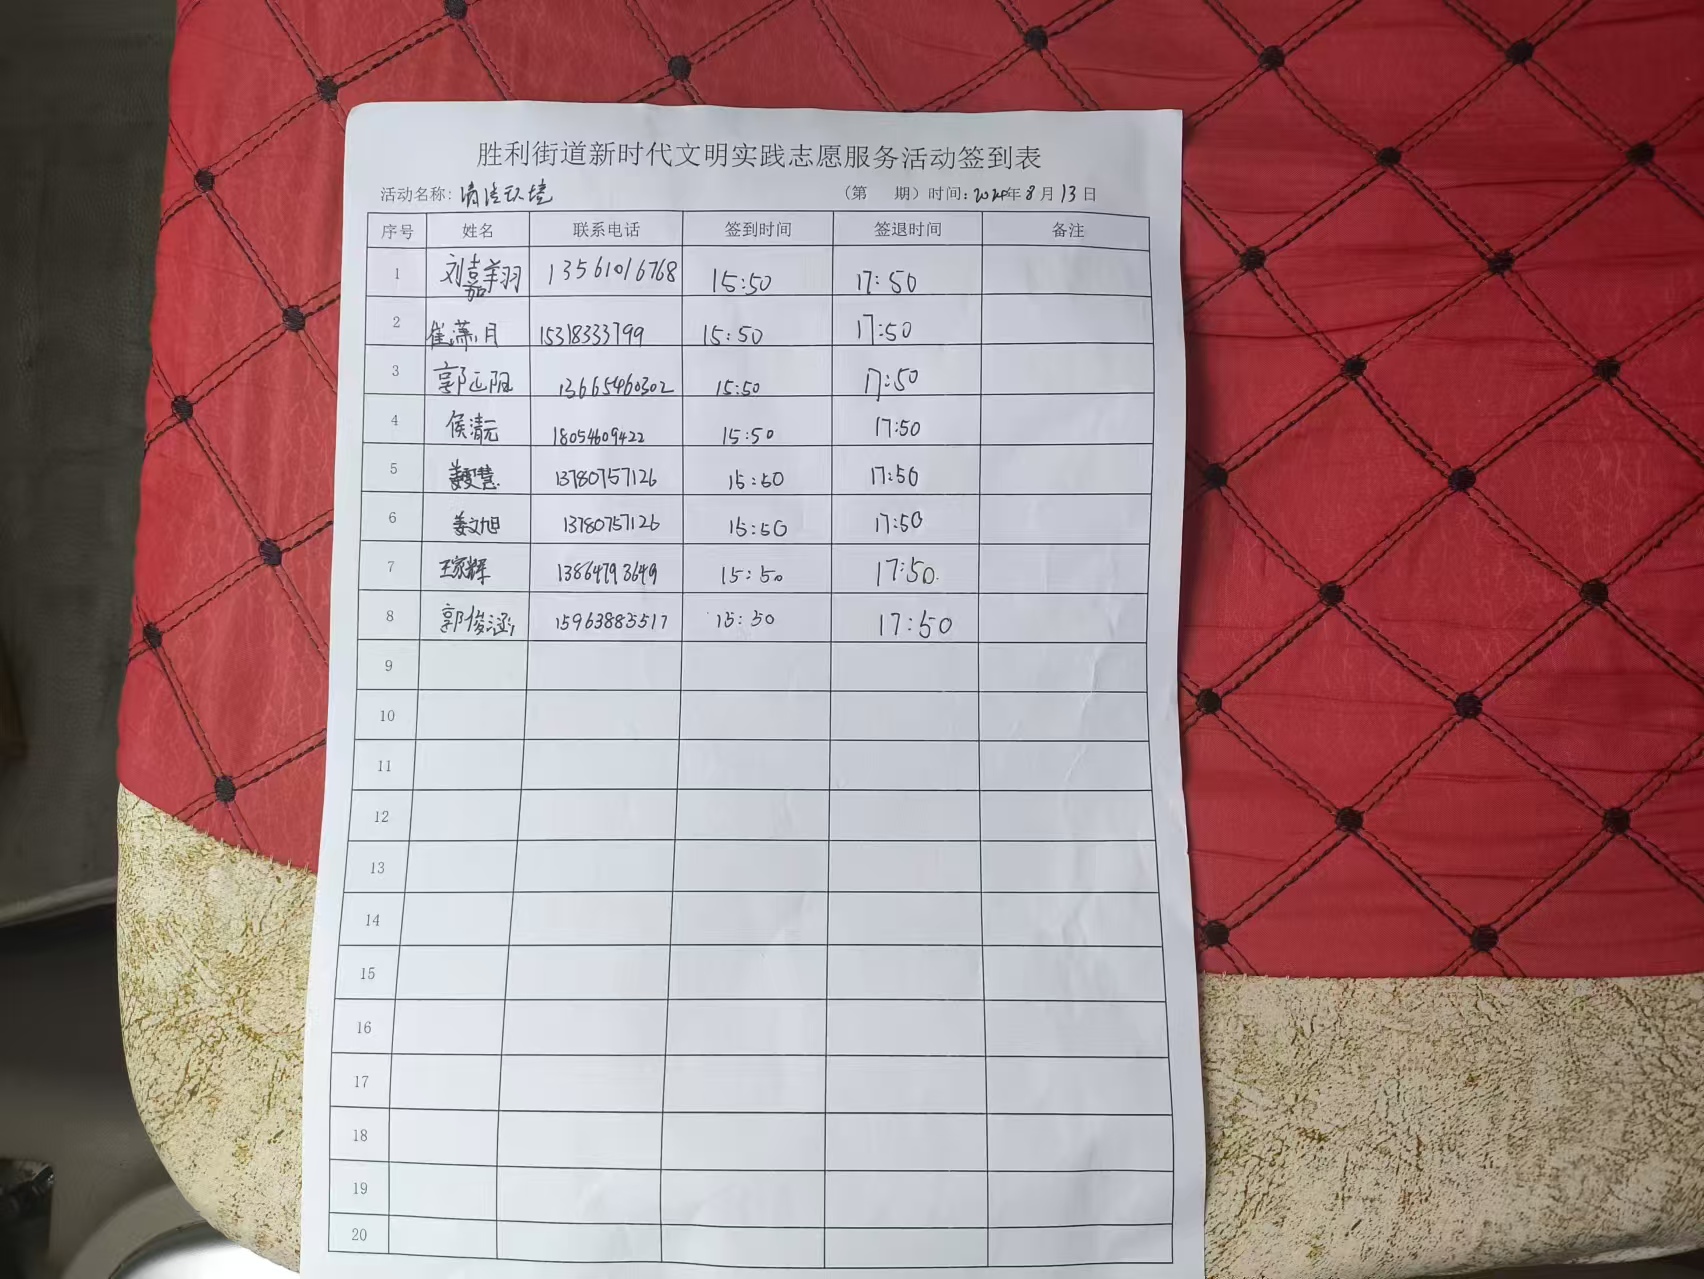 胜利街道新时代文明实践志愿服务活动签到表
活动名称: 清洁环境 （第 期）时间: 2024年8月13日
序号 姓名 联系电话 签到时间 签退时间 备注
1 刘嘉羽 13561016768 15:50 17:50
2 崔潇月 15318333799 15:50 17:50
3 郭正阳 13665460302 15:50 17:50
4 侯清元 18054609422 15:50 17:50
5 姜雯慧 13780757126 15:50 17:50
6 姜文旭 13780757126 15:50 17:50
7 王家辉 13864793649 15:50 17:50
8 郭俊涵 15963885517 15:50 17:50
9
10
11
12
13
14
15
16
17
18
19
20